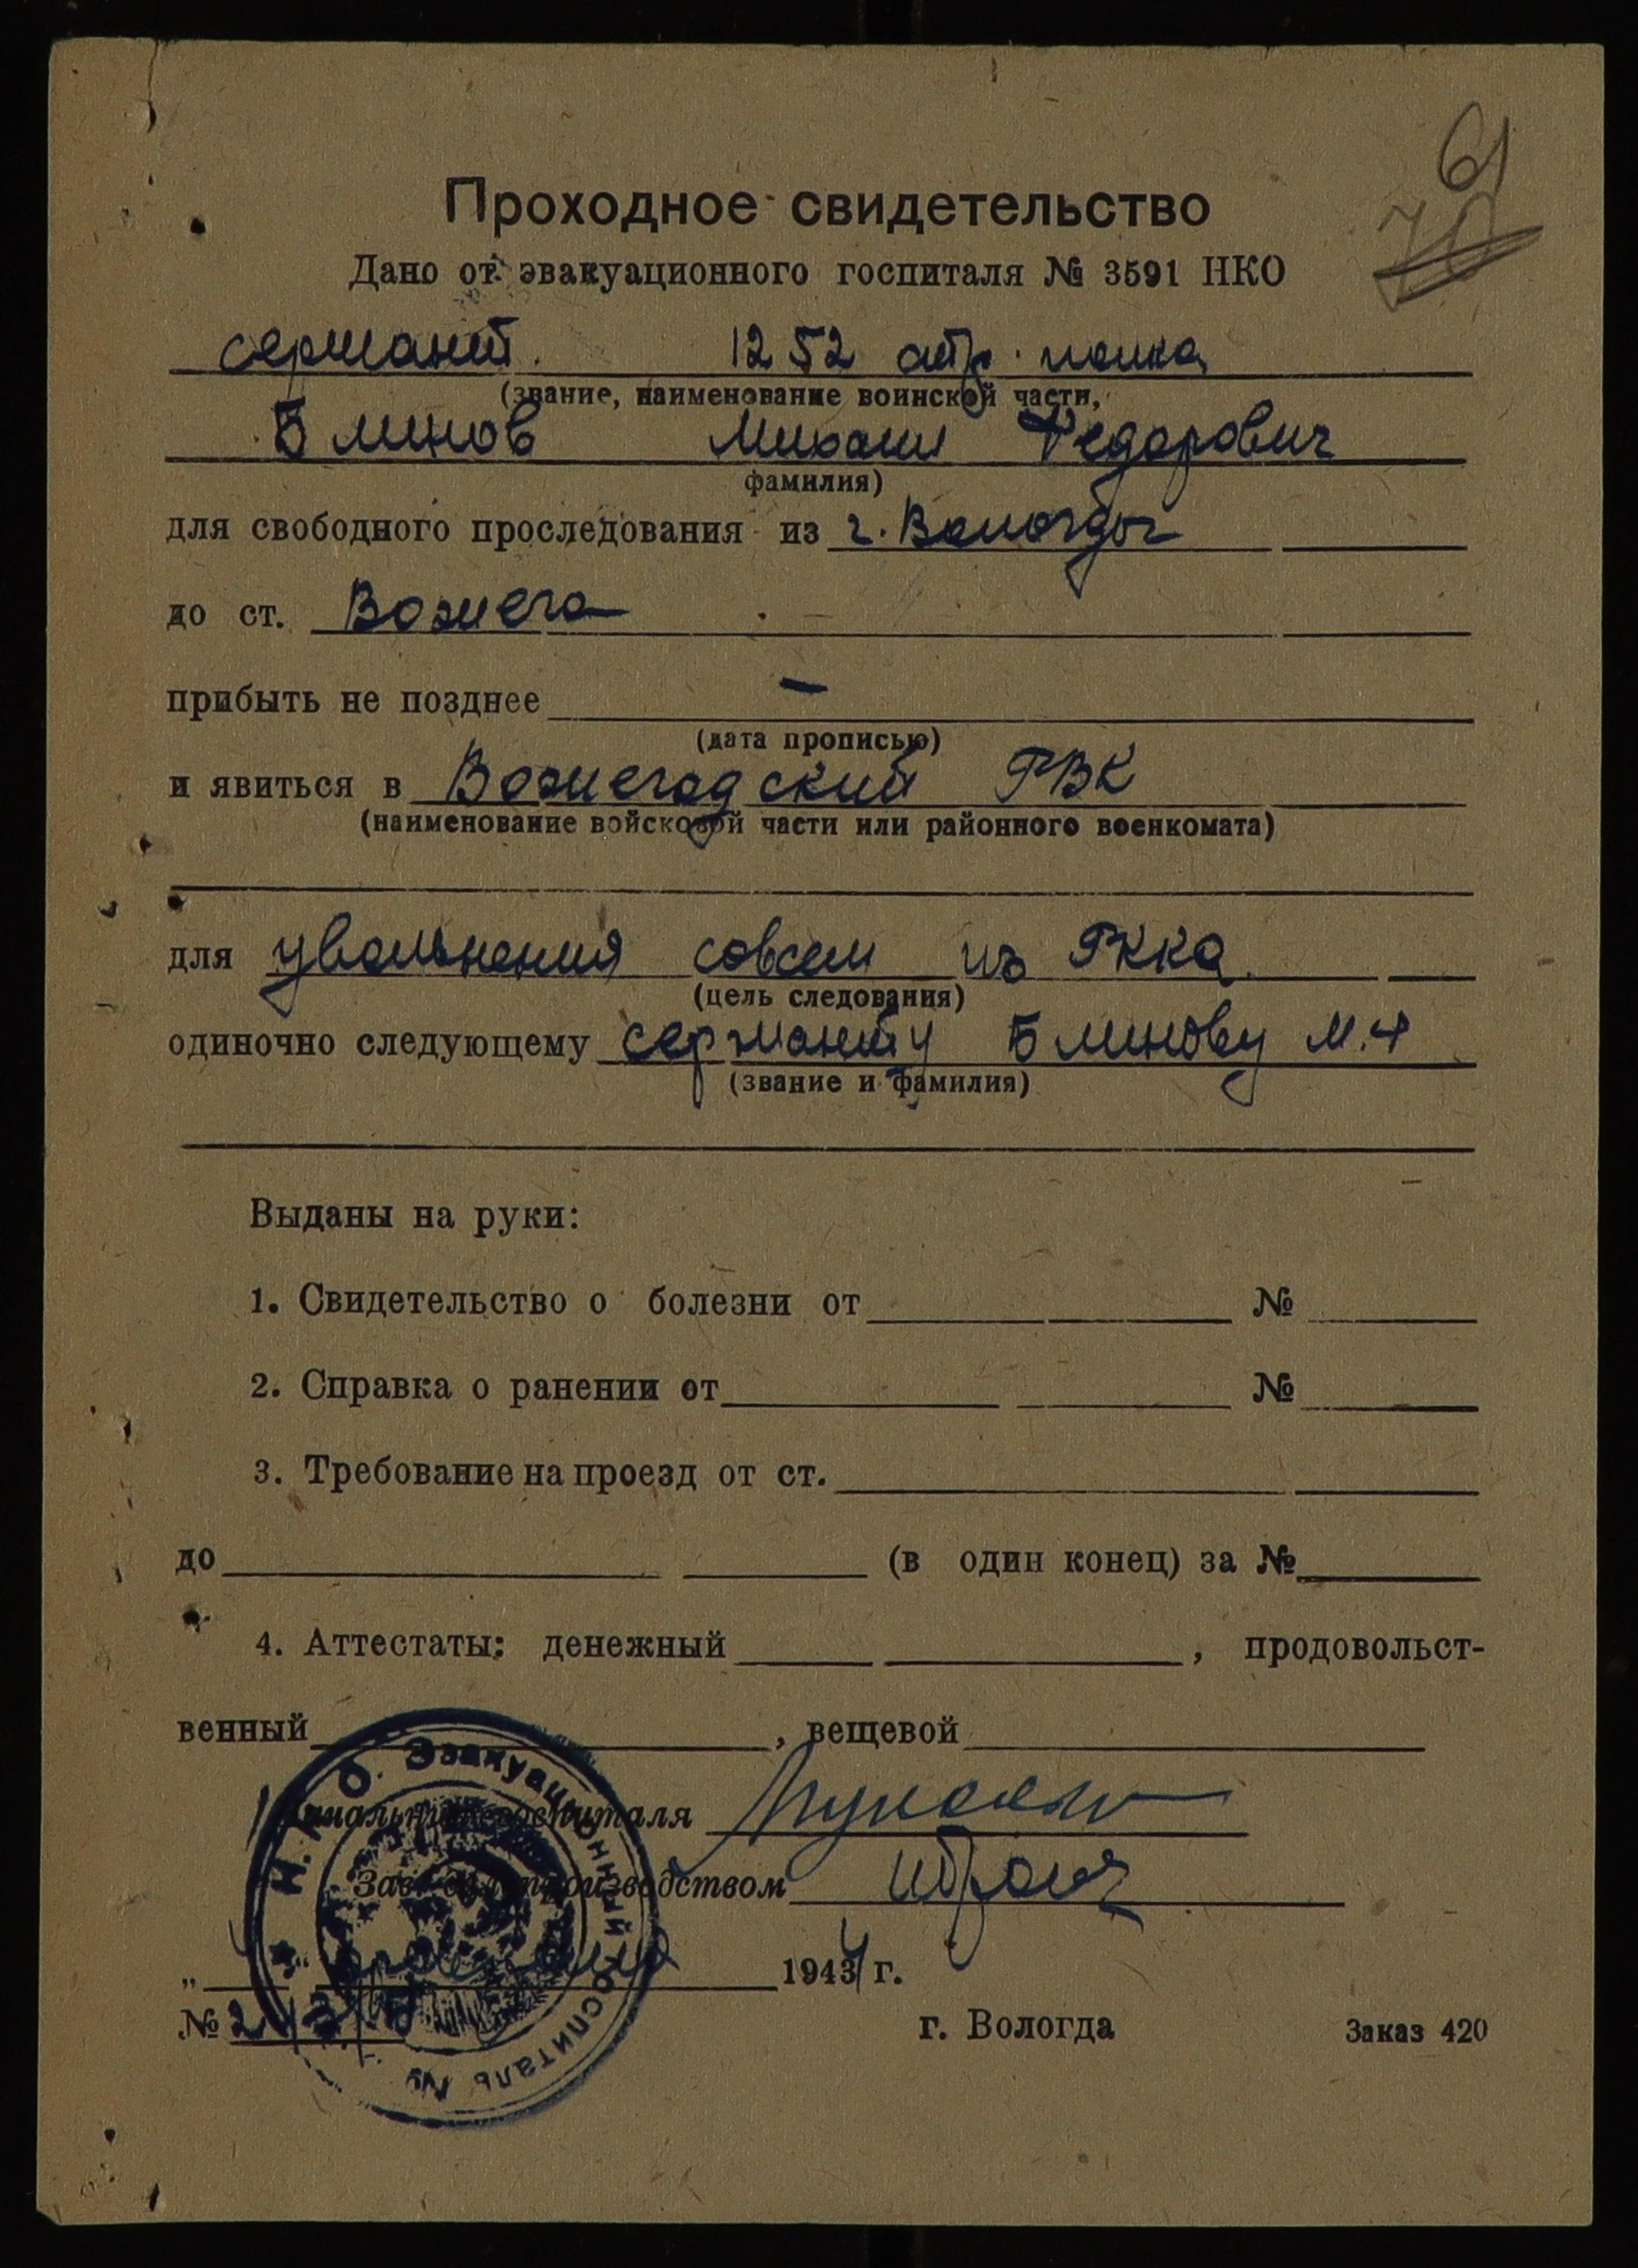 61
70
Проходное свидетельство
Дано от эвакуационного госпиталя № 3591 НКО
сержант. 1252 стр. полка
(звание, наименование воинской части,
Блинов Михаил Федорович
фамилия)
для свободного проследования из г. Вологды
до ст. Вожега
прибыть не позднее —
(дата прописью)
и явиться в Вожегодский РВК
(наименование войсковой части или районного военкомата)
для увольнения совсем из РККА
(цель следования)
одиночно следующему сержанту Блинову М.Ф
(звание и фамилия)
Выданы на руки:
1. Свидетельство о болезни от №
2. Справка о ранении от №
3. Требование на проезд от ст.
до (в один конец) за №
4. Аттестаты: денежный , продовольст-
венный , вещевой
Н.К.О. Эвакуационный госпиталь №
Начальник госпиталя
Зав. делопроизводством
„ “ 1944 г.
№
г. Вологда Заказ 420